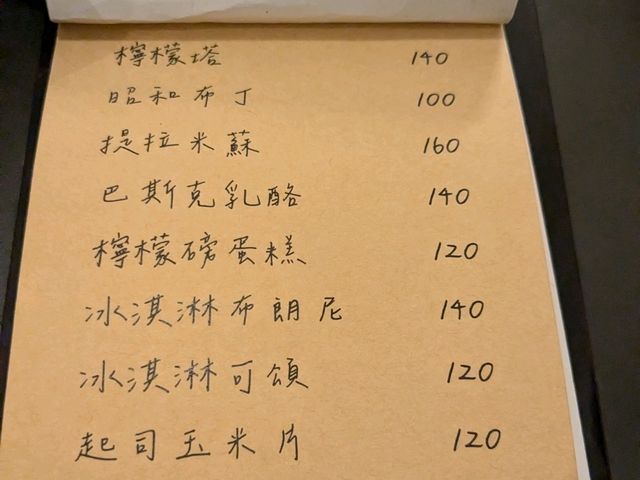 檸檬塔 140
昭和布丁 100
提拉米蘇 160
巴斯克乳酪 140
檸檬磅蛋糕 120
冰淇淋布朗尼 140
冰淇淋可頌 120
起司玉米片 120